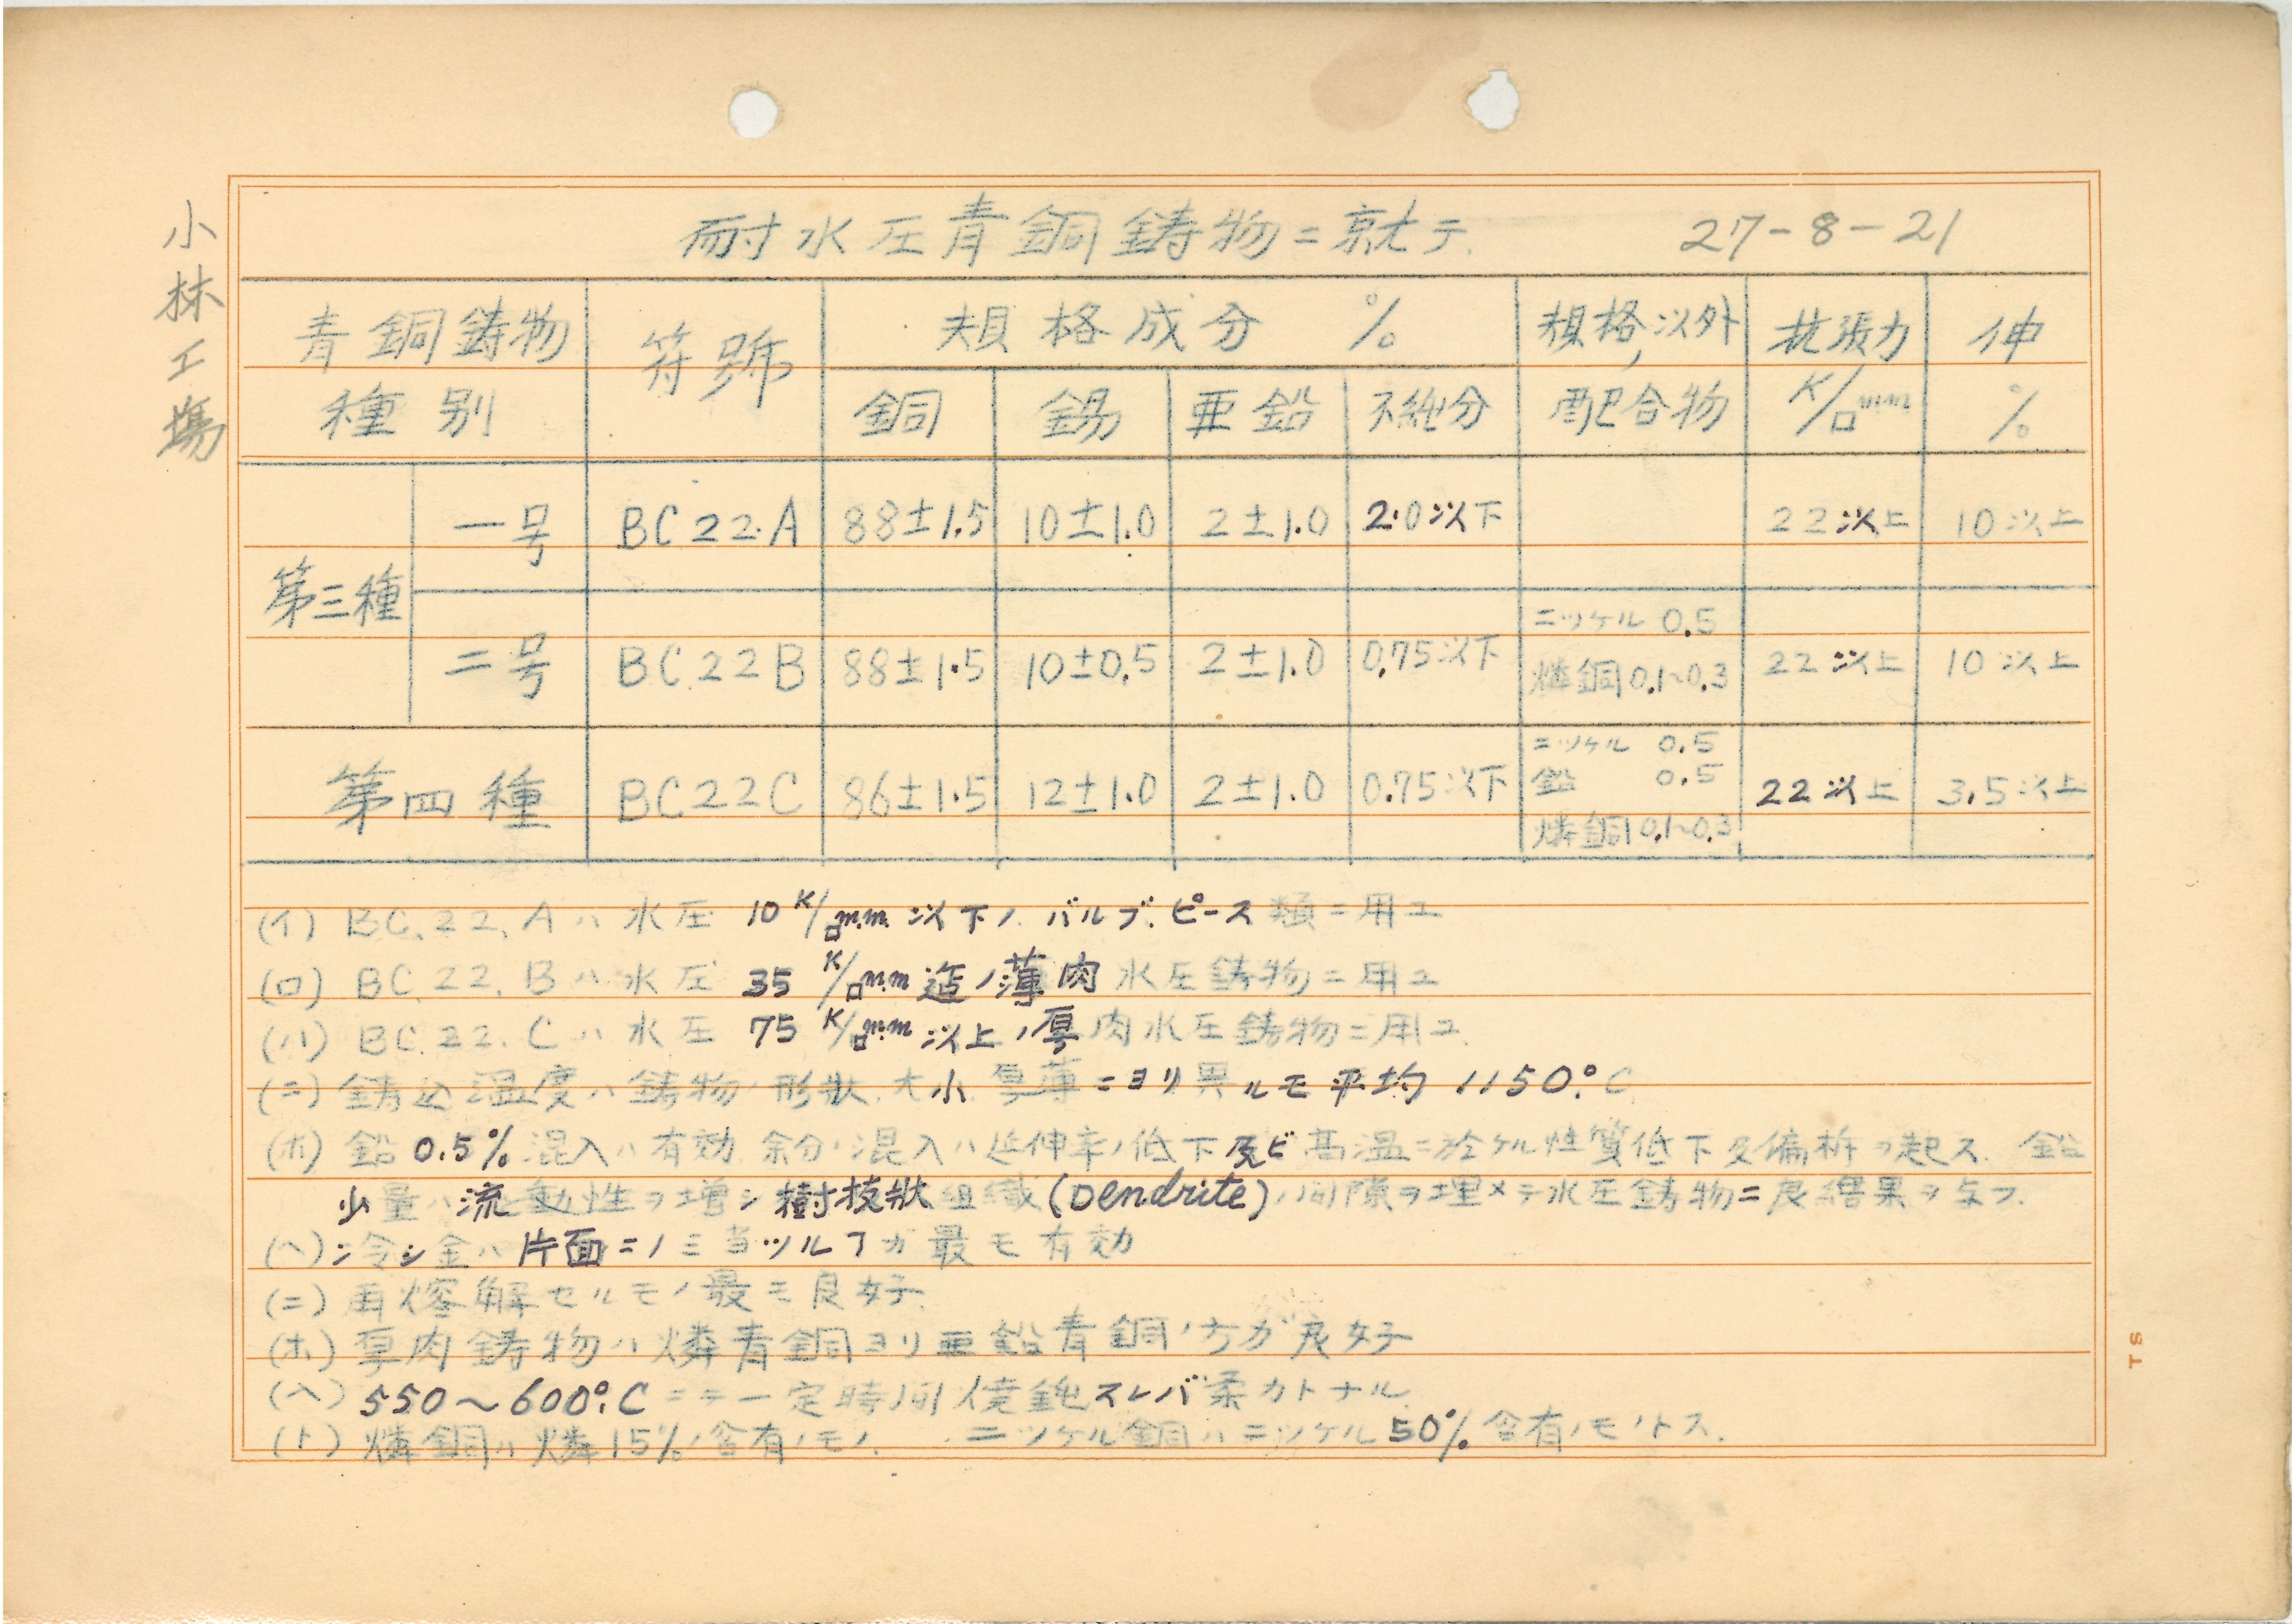 小林工場
耐水圧青銅鋳物ニ就テ. 27-8-21
青銅鋳物種別 符號 規格成分 % 規格以外ノ配合物 抗張力 K/□mm 伸 %
銅 錫 亜鉛 不純分
第三種 一号 BC22.A 88±1.5 10±1.0 2±1.0 2.0以下 22以上 10以上
二号 BC.22B 88±1.5 10±0.5 2±1.0 0.75以下 ニッケル 0.5 燐銅0.1~0.3 22以上 10以上
第四種 BC22C 86±1.5 12±1.0 2±1.0 0.75以下 ニッケル 0.5 鉛 0.5 燐銅0.1~0.3 22以上 3.5以上
(イ) BC.22.Aハ水圧 10 K/□m.m 以下ノバルブ.ピース類ニ用ユ
(ロ) BC.22.Bハ水圧 35 K/□m.m 迄ノ薄肉水圧鋳物ニ用ユ
(ハ) BC.22.Cハ水圧 75 K/□m.m 以上ノ厚肉水圧鋳物ニ用ユ.
(ニ) 鋳込温度ハ鋳物ノ形状.大小.厚薄ニヨリ異ルモ平均 1150°C
(ホ) 鉛 0.5% 混入ハ有効.余分ノ混入ハ延伸率ノ低下及ビ高温ニ於ケル性質低下及偏析ヲ起ス. 鉛
少量ハ流動性ヲ増シ樹枝状組織(Dendrite)ノ間隙ヲ埋メテ水圧鋳物ニ良結果ヲ与フ.
(ヘ) 冷シ金ハ片面ニノミ当ツルヿガ最モ有効
(ニ) 再熔解セルモノ最モ良好.
(ホ) 厚肉鋳物ハ燐青銅ヨリ亜鉛青銅ノ方ガ良好
(ヘ) 550~600°Cニテ一定時間焼鈍スレバ柔カトナル.
(ト) 燐銅ハ燐15%ノ含有ノモノ. ニッケル銅ハニッケル50%含有ノモノトス.
TS